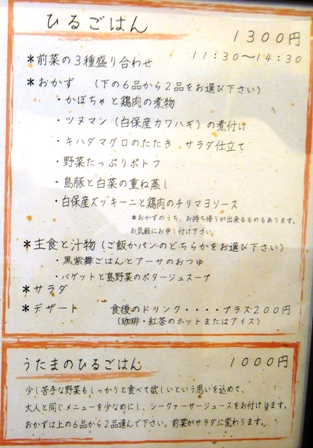 ひるごはん
1300円
11:30〜14:30
*前菜の3種盛り合わせ
*おかず (下の6品から2品をお選び下さい)
・かぼちゃと鶏肉の煮物
・ツヌマン(白保産カワハギ)の煮付け
・キハダマグロのたたき サラダ仕立て
・野菜たっぷりポトフ
・島豚と白菜の重ね蒸し
・白保産ズッキーニと鶏肉のチリマヨソース
*おかずのうち、お持ち帰りが出来るものもあります。
お気軽にお申し付け下さい。
*主食と汁物(ご飯かパンのどちらかをお選び下さい)
・黒紫舞ごはんとアーサのおつゆ
・バゲットと島野菜のポタージュスープ
*サラダ
*デザート 食後のドリンク・・・・プラス200円
(珈琲・紅茶のホットまたはアイス)
うたまのひるごはん 1000円
少し苦手な野菜もしっかりと食べて欲しいという思いを込めて、
大人と同じメニューを少なめにし、シークァーサージュースをお付けします。
おかずは上の6品から2品選んで下さい。前菜がサラダに変わります。